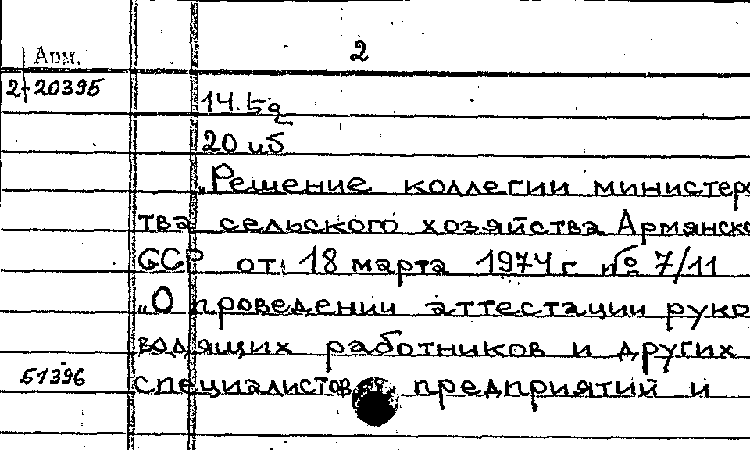 Арм. 2
2-20395
14.Бզ
20 иб
„Решение коллегии министерс
тва сельского хозяйства Армянско
ССР от 18 марта 1974 г № 7/11
„О проведении аттестации руко
водящих работников и других
51396 специалистов предприятий и